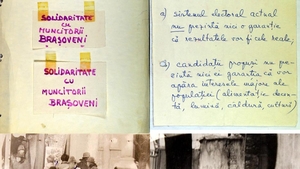 SOLIDARITATE
CU
MUNCITORII
BRAȘOVENI
SOLIDARITATE
CU
MUNCITORII
BRAȘOVENI
a) sistemul electoral actual
nu prezintă nici o garanție
că rezultatele vor fi cele reale,
b) candidații propuși nu pre-
zintă nici ei garanția că vor
apăra interesele majore ale
populației (alimentație decen-
tă, lumină, căldură, cultură)